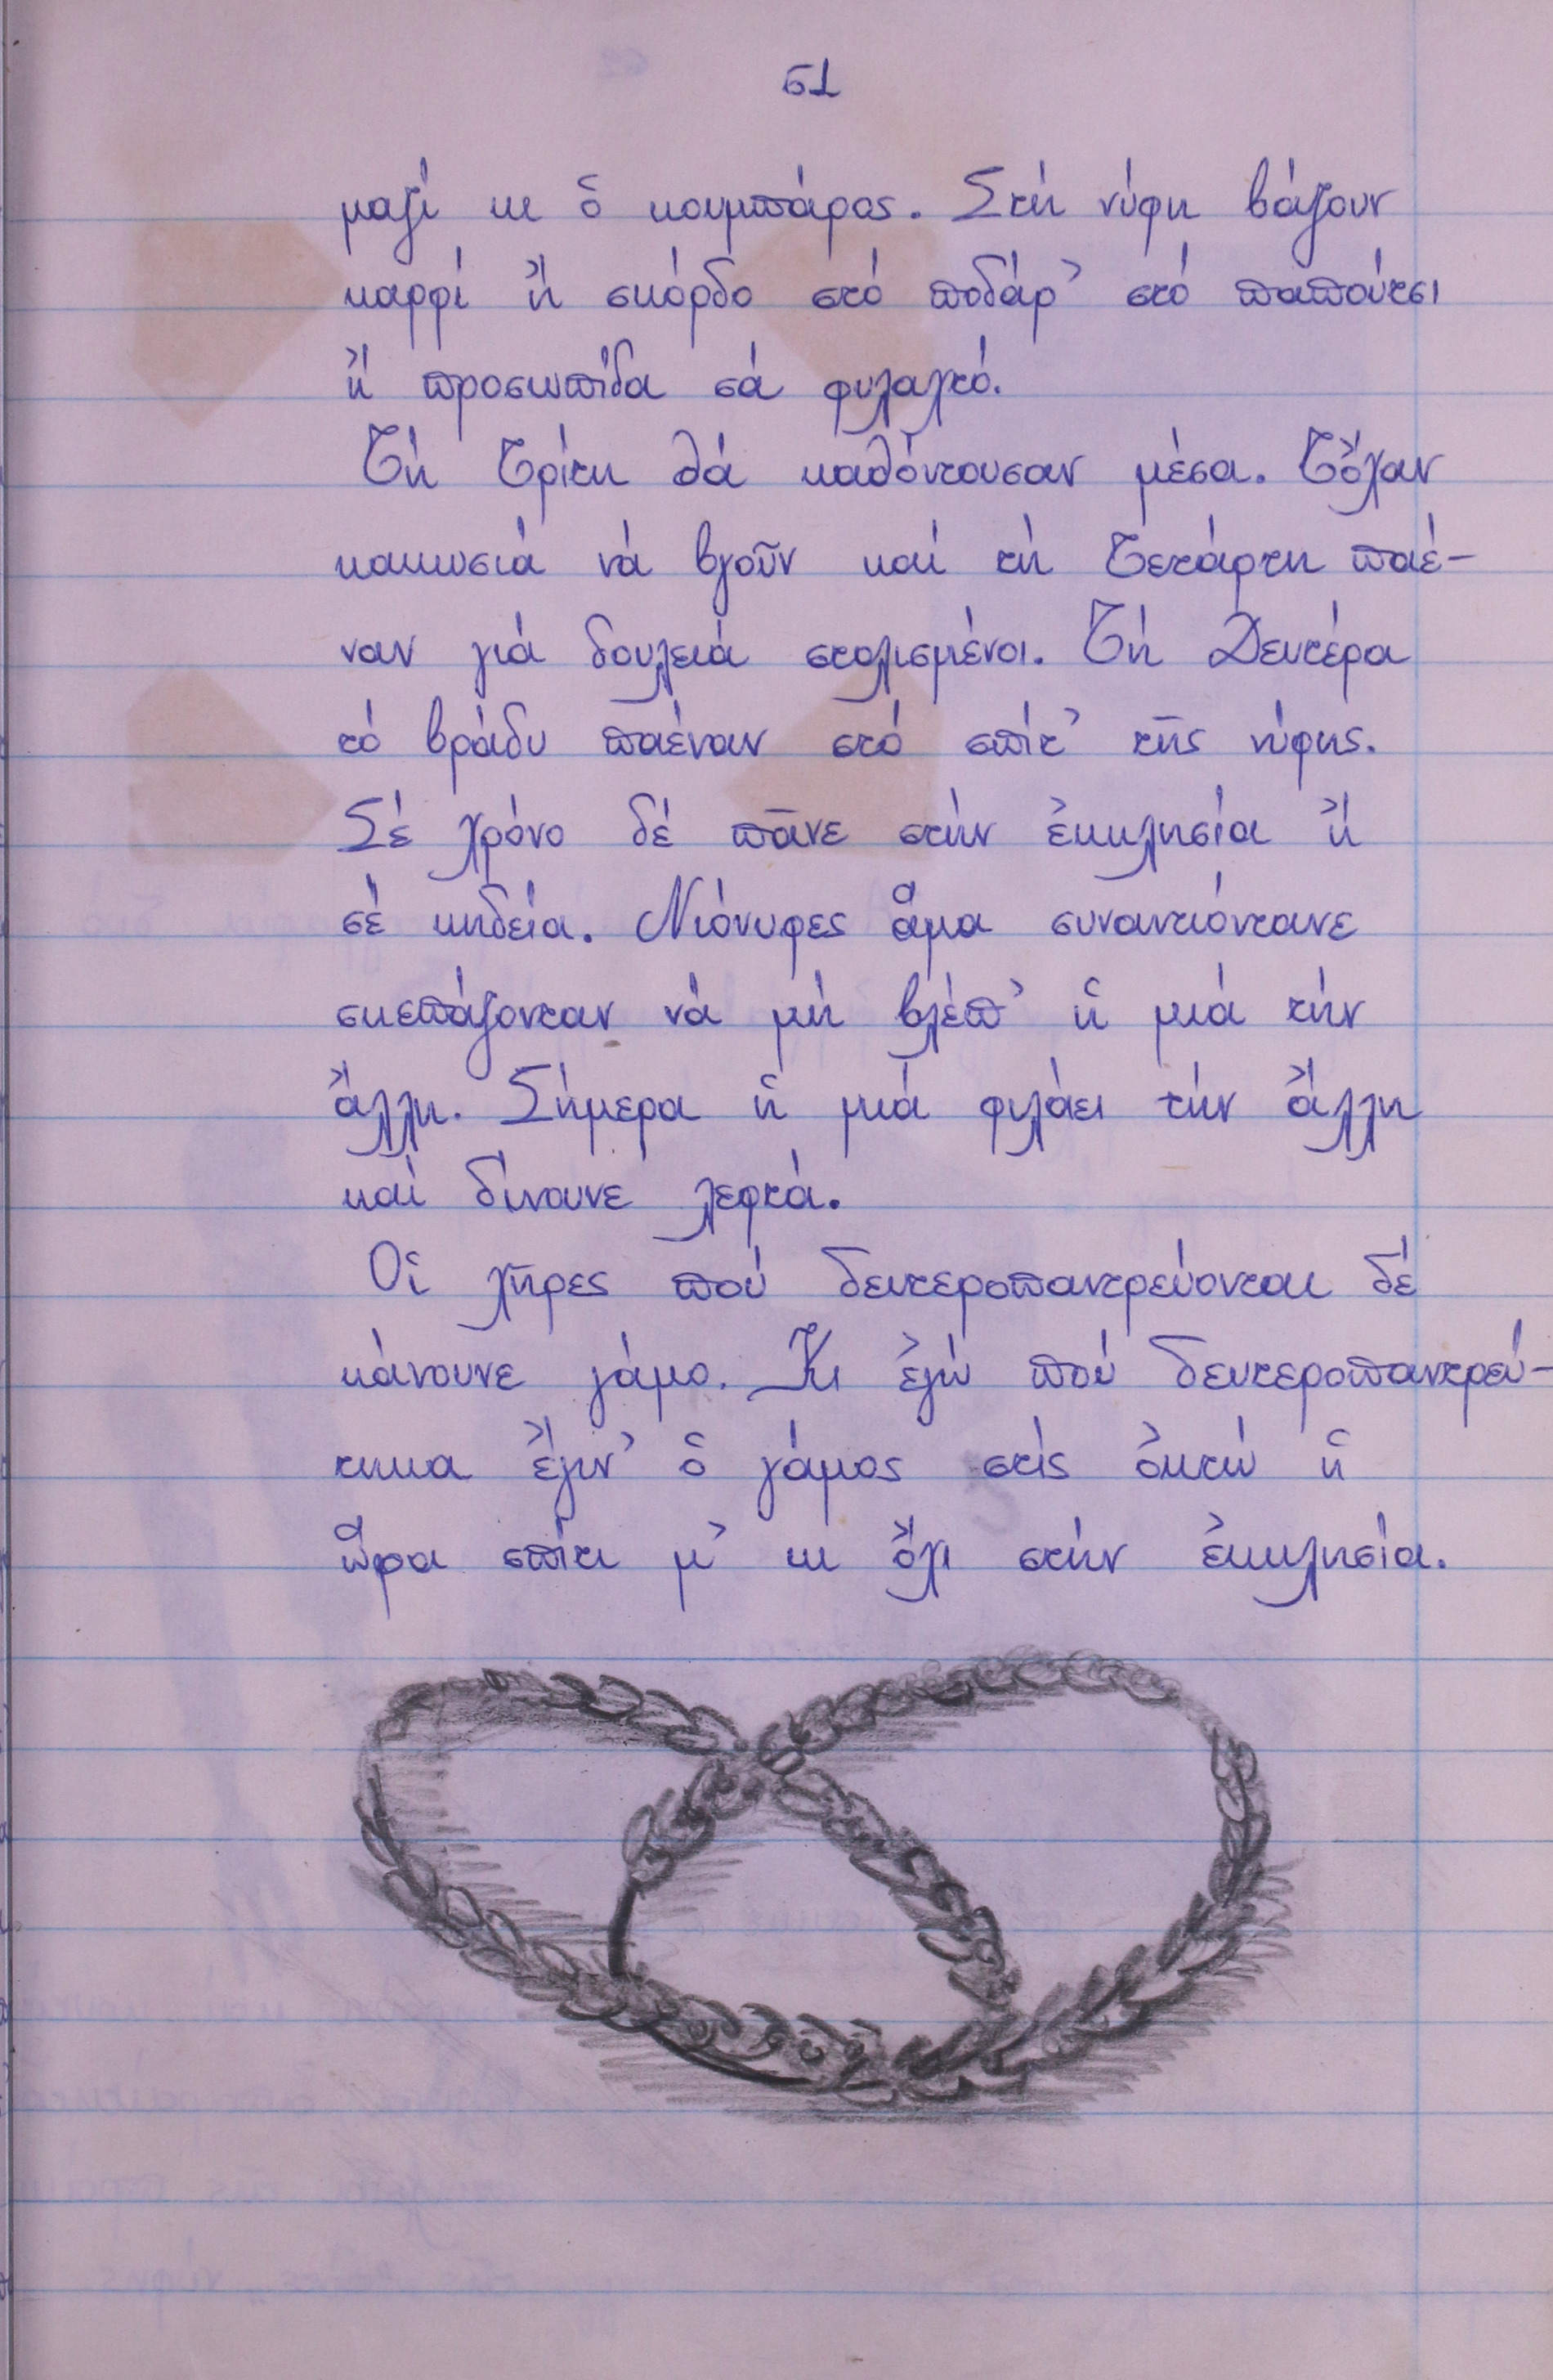 61
μαζί κι ὁ κουμπάρος. Στή νύφη βάζουν
καρφί ἤ σκόρδο στό ποδάρ᾽ στό παπούτσι
ἤ προσωπίδα σά φυλαχτό.
Τή Τρίτη θά καθόντουσαν μέσα. Τὄχαν
κακωσιά νά βγοῦν καί τή Τετάρτη παέ-
ναν γιά δουλειά στολισμένοι. Τή Δευτέρα
τό βράδυ παέναν στό σπίτ᾽ τῆς νύφης.
Σέ χρόνο δέ πᾶνε στήν ἐκκλησία ἤ
σέ κηδεία. Νιόνυφες ἅμα συναντιόντανε
σκεπάζονταν νά μή βλέπ᾽ ἡ μιά τήν
ἄλλη. Σήμερα ἡ μιά φιλάει τήν ἄλλη
καί δίνουνε λεφτά.
Οἱ χῆρες πού δευτεροπαντρεύονται δέ
κάνουνε γάμο. Κι ἐγώ πού δευτεροπαντρεύ-
τηκα ἔγιν᾽ ὁ γάμος στίς ὀκτώ ἡ
ὥρα σπίτι μ᾽ κι ὄχι στήν ἐκκλησία.